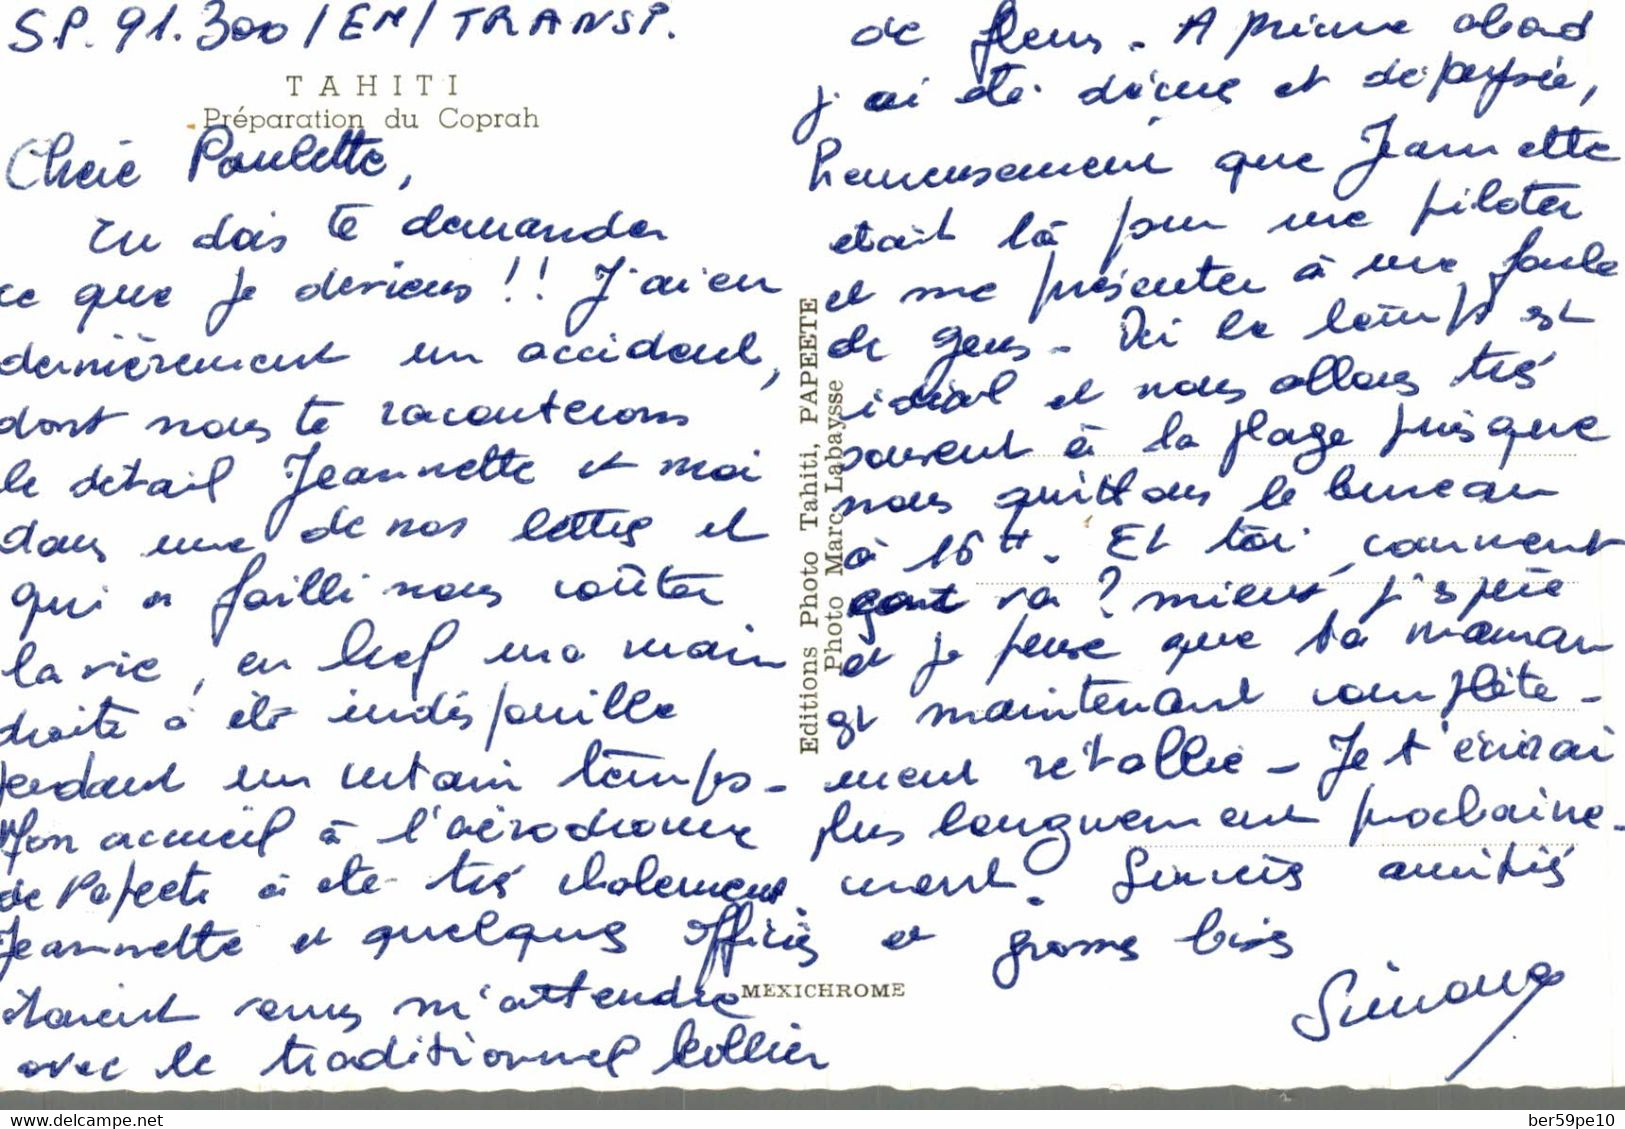 S.P. 91.300 / EM / TRANSP.
TAHITI
Préparation du Coprah
Chère Paulette,
Tu dois te demander
ce que je deviens !! J'ai eu
dernièrement un accident,
dont nous te raconterons
le détail Jeannette et moi
dans une de nos lettres et
qui a failli nous coûter
la vie, en bref ma main
droite a été
pendant un certain temps -
Mon accueil à l'aérodrome
de Papeete a été très
Jeannette et quelques officiers
étaient venus m'attendre
avec le traditionnel collier
de fleurs - A prime abord
j'ai été déçue et dépaysée,
heureusement que Jeannette
était là pour me piloter
et me présenter à une foule
de gens - Ici le temps est
idéal et nous allons très
souvent à la plage puisque
nous quittons le bureau
à 16 H. Et toi, comment
va ? mieux j'espère
et je pense que ta maman
est maintenant complète-
ment rétablie - Je t'écrirai
plus longuement prochaine-
ment. Sincères amitiés
et grosses bises
Simone
Editions Photo Tahiti, PAPEETE
Photo Marc Labaysse
MEXICHROME
delcampe.net
ber59pe10